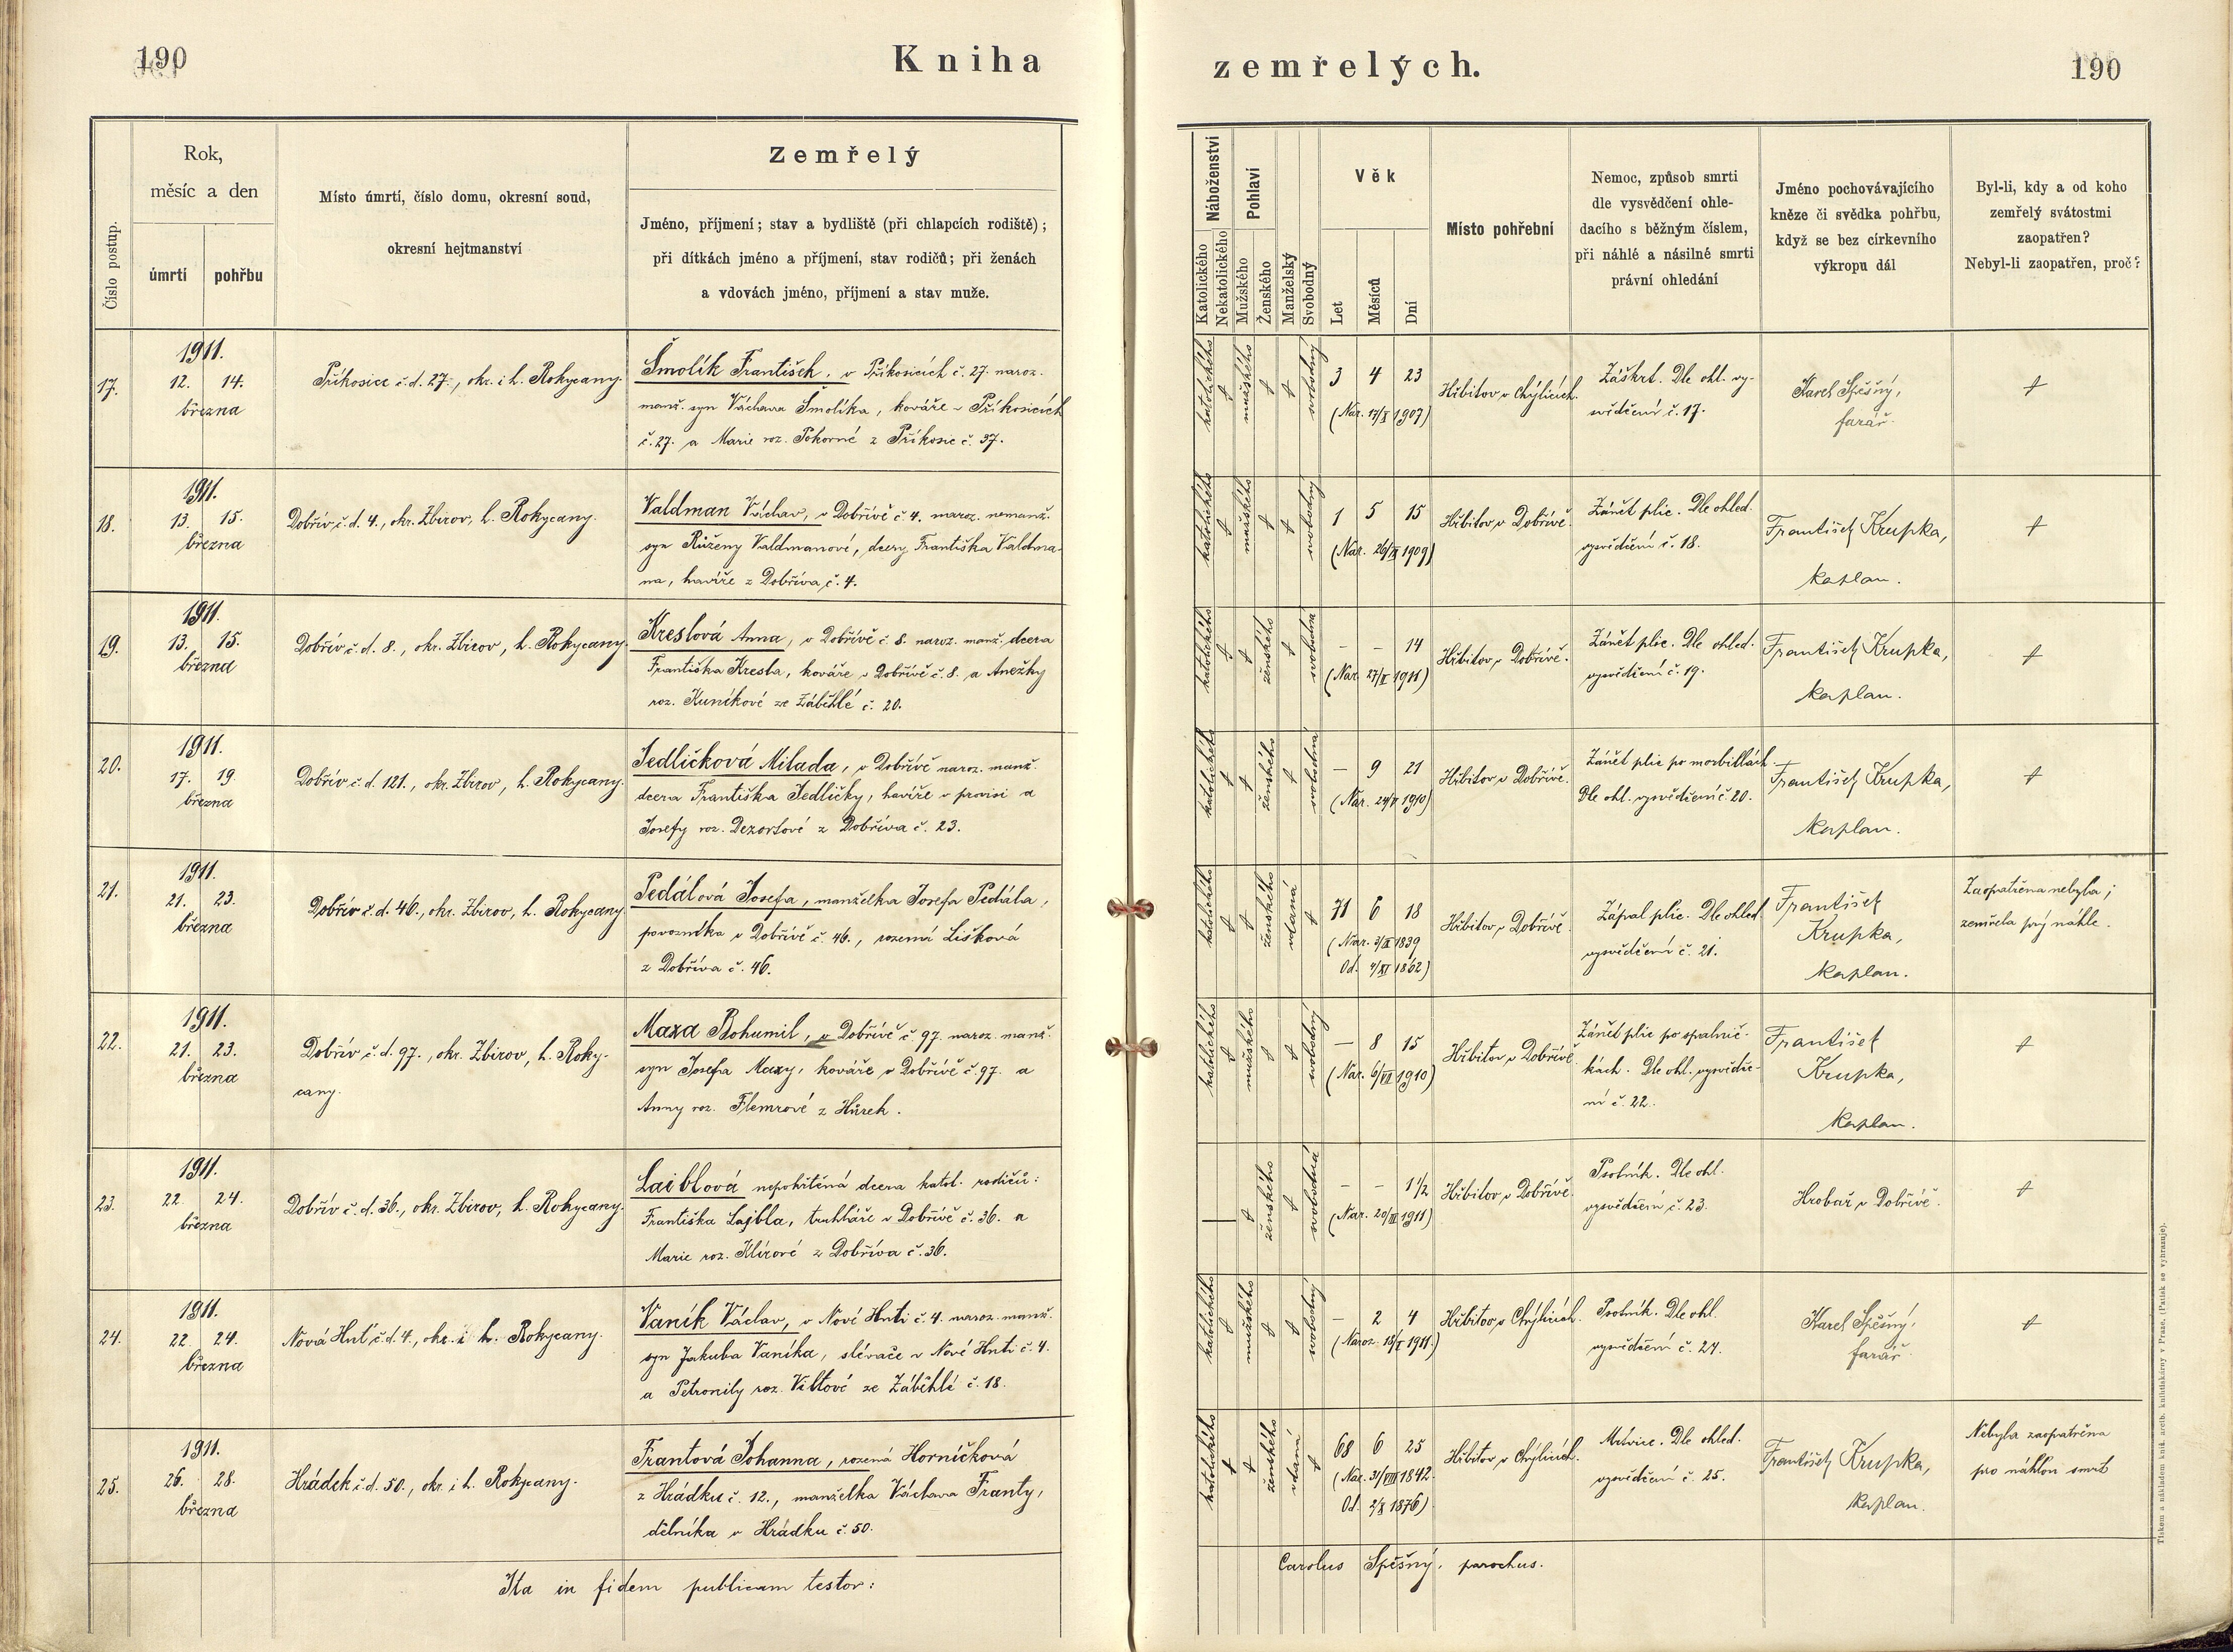 190
Kniha
zemřelých.
190
Číslo postup.
Rok,
měsíc a den
úmrtí
pohřbu
Místo úmrtí, číslo domu, okresní soud,
okresní hejtmanství
Zemřelý
Jméno, příjmení; stav a bydliště (při chlapcích rodiště);
při dítkách jméno a příjmení, stav rodičů; při ženách
a vdovách jméno, příjmení a stav muže.
Náboženství
Katolického
Nekatolického
Pohlaví
Mužského
Ženského
Manželský
Svobodný
Věk
Let
Měsíců
Dní
Místo pohřební
Nemoc, způsob smrti
dle vysvědčení ohle-
dacího s běžným číslem,
při náhlé a násilné smrti
právní ohledání
Jméno pochovávajícího
kněze či svědka pohřbu,
když se bez církevního
výkropu dál
Byl-li, kdy a od koho
zemřelý svátostmi
zaopatřen?
Nebyl-li zaopatřen, proč?
17.
1911.
12. 14.
března
Příkosice č.d. 27., okr. i h. Rokycany.
Šmolík František, v Příkosicích č. 27. naroz.
manž. syn Václava Šmolíka, kováře v Příkosicích
č. 27. a Marie roz. Pokorné z Příkosic č. 37.
katolického
mužského
svobodný
3 4 23
(Nar. 17/X 1907)
Hřbitov v Mýticích.
Záškrt. Dle ohl. vy-
svědčení č. 17.
Karel Spěšný,
farář.
18.
1911.
13. 15.
března
Dobřív č. d. 4., okr. Zbirov, h. Rokycany.
Valdman Václav, v Dobřívě č. 4. naroz. nemanž.
syn Růženy Valdmanové, dcery Františka Valdma-
na, havíře z Dobříva č. 4.
katolického
mužského
svobodný
1 5 15
(Nar. 26/IX 1909)
Hřbitov v Dobřívě.
Zánět plic. Dle ohled.
vysvědčení č. 18.
František Krupka,
kaplan.
19.
1911.
13. 15.
března
Dobřív č. d. 8., okr. Zbirov, h. Rokycany.
Kreslová Anna, v Dobřívě č. 8. naroz. manž. dcera
Františka Kresla, kováře v Dobřívě č. 8. a Anežky
roz. Kuníkové ze Záběhlé č. 20.
katolického
ženského
svobodná
– – 14
(Nar. 27/II 1911)
Hřbitov v Dobřívě.
Zánět plic. Dle ohled.
vysvědčení č. 19.
František Krupka,
kaplan.
20.
1911.
17. 19.
března
Dobřív č. d. 121., okr. Zbirov, h. Rokycany.
Jedličková Milada, v Dobřívě naroz. manž.
dcera Františka Jedličky, havíře v provisi a
Josefy roz. Dezortové z Dobříva č. 23.
katolického
ženského
svobodná
– 9 21
(Nar. 24/V 1910)
Hřbitov v Dobřívě.
Zánět plic po morbillách.
Dle ohl. vysvědčení č. 20.
František Krupka,
kaplan.
21.
1911.
21. 23.
března
Dobřív č. d. 46., okr. Zbirov, h. Rokycany
Pedálová Josefa, manželka Josefa Pedála,
povozníka v Dobřívě č. 46., rozená Lišková
z Dobříva č. 46.
katolického
ženského
vdaná
71 6 18
(Nar. 3/IX 1839
Od. 4/XI 1862)
Hřbitov v Dobřívě.
Zápal plic. Dle ohled.
vysvědčení č. 21.
František
Krupka,
kaplan.
Zaopatřena nebyla;
zemřela prý náhle.
22.
1911.
21. 23.
března
Dobřív č. d. 97., okr. Zbirov, h. Roky-
cany.
Maxa Bohumil, v Dobřívě č. 97. naroz. manž.
syn Josefa Maxy, kováře v Dobřívě č. 97. a
Anny roz. Flemrové z Hůrek.
katolického
mužského
svobodný
– 8 15
(Nar. 6/VII 1910)
Hřbitov v Dobřívě.
Zánět plic po spalnič-
kách. Dle ohl. vysvědče-
ní č. 22.
František
Krupka,
kaplan.
23.
1911.
22. 24.
března
Dobřív č. d. 36., okr. Zbirov, h. Rokycany.
Laiblová nepokřtěná dcera katol. rodičů:
Františka Lajbla, truhláře v Dobřívě č. 36. a
Marie roz. Klírové z Dobříva č. 36.
ženského
svobodná
– – 1 1/2
(Nar. 20/III 1911)
Hřbitov v Dobřívě.
Psotník. Dle ohl.
vysvědčení č. 23.
Hrobař v Dobřívě.
24.
1911.
22. 24.
března
Nová Huť č. d. 4., okr. i h. Rokycany.
Vaník Václav, v Nové Huti č. 4. naroz. manž.
syn Jakuba Vaníka, slévače v Nové Huti č. 4.
a Petronily roz. Viktové ze Záběhlé č. 18.
katolického
mužského
svobodný
– 2 4
(Naroz. 18/I 1911.)
Hřbitov v Mýticích.
Psotník. Dle ohl.
vysvědčení č. 24.
Karel Spěšný,
farář.
25.
1911.
26. 28.
března
Hrádek č. d. 50., okr. i h. Rokycany.
Frantová Johanna, rozená Horníčková
z Hrádku č. 12., manželka Václava Franty,
dělníka v Hrádku č. 50.
katolického
ženského
vdaná
68 6 25
(Nar. 31/VIII 1842.
Od. 2/X 1876)
Hřbitov v Mýticích.
Mrtvice. Dle ohled.
vysvědčení č. 25.
František Krupka,
kaplan.
Nebyla zaopatřena
pro náhlou smrt
Ita in fidem publicam testor:
Carolus Spěšný, parochus.
Tiskem a nákladem kníž. arcib. knihtiskárny v Praze. (Patisk se vyhrazuje).